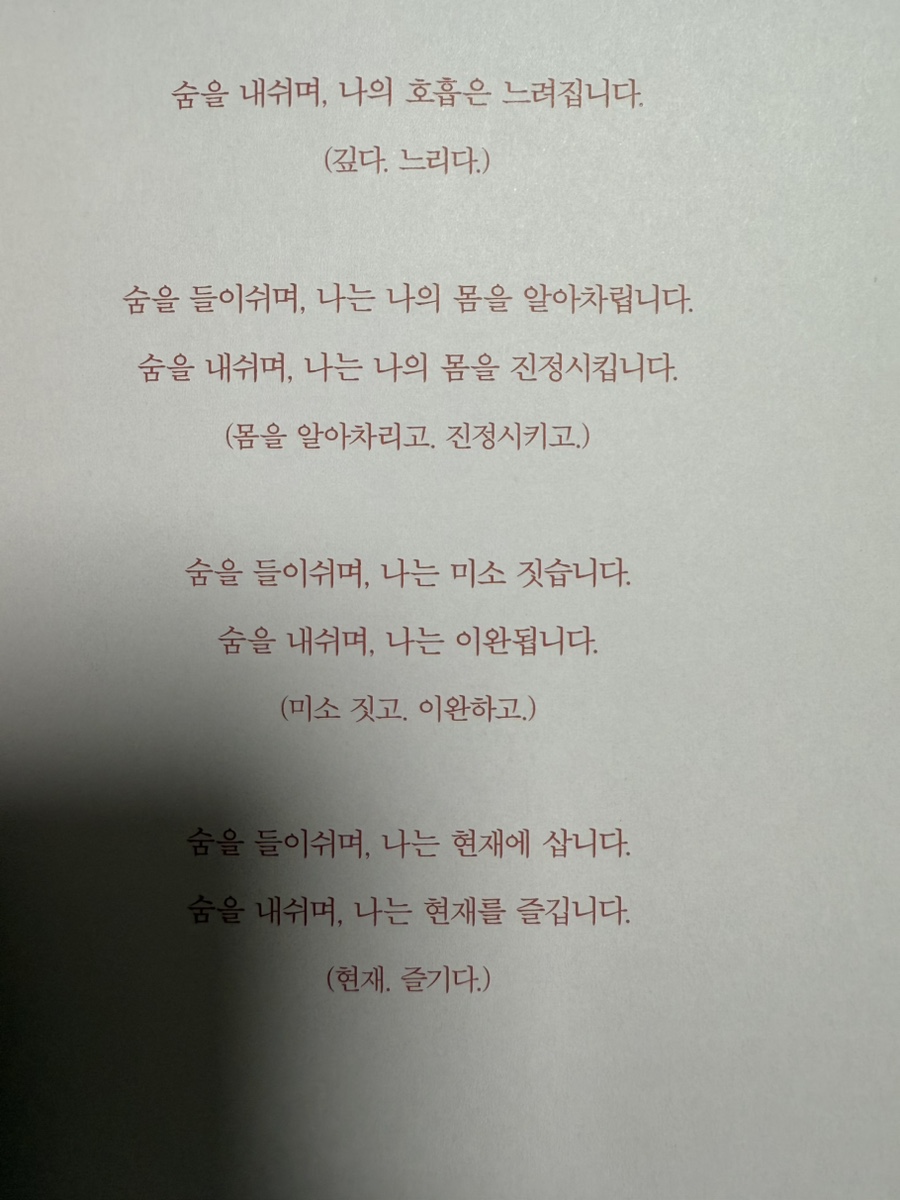 숨을 내쉬며, 나의 호흡은 느려집니다.
(깊다. 느리다.)
숨을 들이쉬며, 나는 나의 몸을 알아차립니다.
숨을 내쉬며, 나는 나의 몸을 진정시킵니다.
(몸을 알아차리고. 진정시키고.)
숨을 들이쉬며, 나는 미소 짓습니다.
숨을 내쉬며, 나는 이완됩니다.
(미소 짓고. 이완하고.)
숨을 들이쉬며, 나는 현재에 삽니다.
숨을 내쉬며, 나는 현재를 즐깁니다.
(현재. 즐기다.)